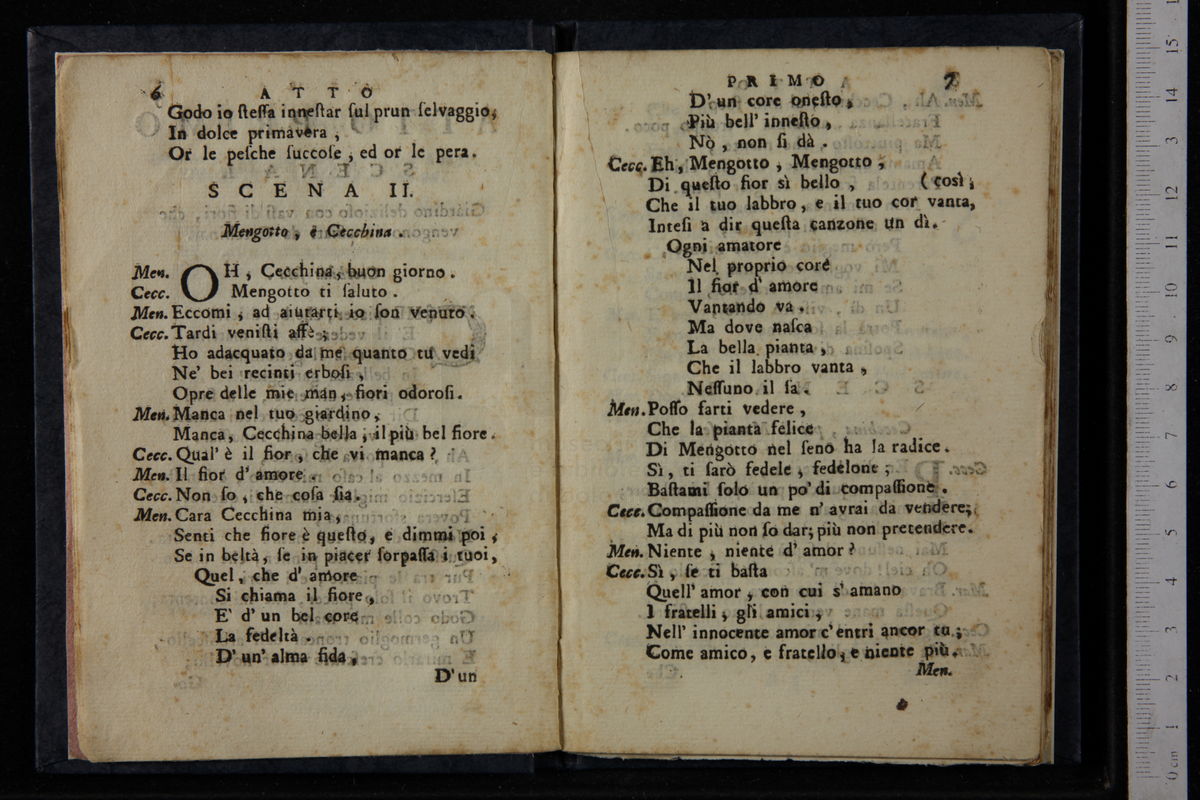 6
ATTO
Godo io ſteſſa inneſtar ſul prun ſelvaggio,
In dolce primavera,
Or le peſche ſuccoſe, ed or le pera.
SCENA II.
Mengotto, e Cecchina.
Men. OH, Cecchina, buon giorno.
Cecc. Mengotto ti ſaluto.
Men. Eccomi, ad aiutarti io ſon venuto.
Cecc. Tardi veniſti affè;
Ho adacquato da me quanto tu vedi
Ne' bei recinti erboſi,
Opre delle mie man, fiori odoroſi.
Men. Manca nel tuo giardino,
Manca, Cecchina bella, il più bel fiore.
Cecc. Qual' è il fior, che vi manca?
Men. Il fior d' amore.
Cecc. Non ſo, che coſa ſia.
Men. Cara Cecchina mia,
Senti che fiore è queſto, e dimmi poi,
Se in beltà, ſe in piacer ſorpaſſa i tuoi,
Quel, che d' amore
Si chiama il fiore,
E' d' un bel core
La fedeltà.
D' un' alma fida,
D' un
PRIMO
7
D' un core oneſto,
Più bell' inneſto,
Nò, non ſi dà.
Cecc. Eh, Mengotto, Mengotto,
Di queſto fior sì bello, (così,
Che il tuo labbro, e il tuo cor vanta,
Inteſi a dir queſta canzone un dì.
Ogni amatore
Nel proprio core
Il fior d' amore
Vantando va.
Ma dove naſca
La bella pianta,
Che il labbro vanta,
Neſſuno il ſa.
Men. Poſſo farti vedere,
Che la pianta felice
Di Mengotto nel ſeno ha la radice.
Sì, ti ſarò fedele, fedelone;
Baſtami ſolo un po' di compaſſione.
Cecc. Compaſſione da me n' avrai da vendere;
Ma di più non ſo dar; più non pretendere.
Men. Niente, niente d' amor?
Cecc. Sì, ſe ti baſta
Quell' amor, con cui s' amano
I fratelli, gli amici,
Nell' innocente amor c' entri ancor tu;
Come amico, e fratello, e niente più.
Men.